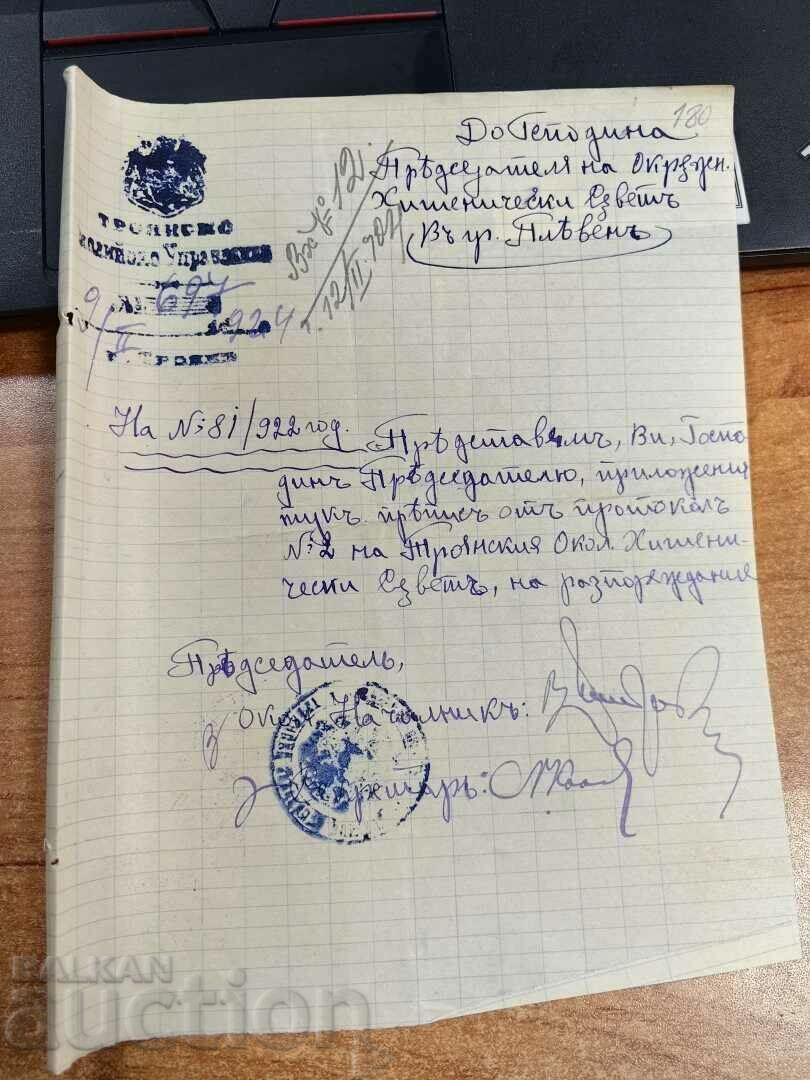 180
До Господина
Прѣдседателя на Окрѫжн.
Хигиенически Съветъ
Въ гр. Плѣвенъ
Вх № 12
12/II 924
ТРОЯНСКО
Управление
№ 697
9/II 924
г. Троянъ
На №: 81/922 год. Прѣдставямъ, Ви, Госпо
динъ Прѣдседателю, приложения
тукъ прѣписъ отъ протоколъ
№: 2 на Троянския Окол. Хигиени-
чески Съветъ, на разпореждание
Прѣдседатель,
Окол. Началникъ:
Секретарь:
BALKAN
auction